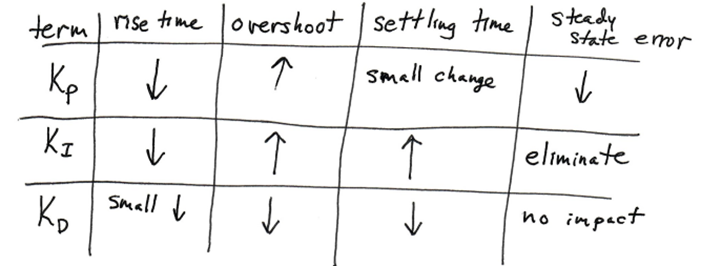 term | rise time | overshoot | settling time | steady state error
Kp | ↓ | ↑ | small change | ↓
KI | ↓ | ↑ | ↑ | eliminate
KD | small ↓ | ↓ | ↓ | no impact